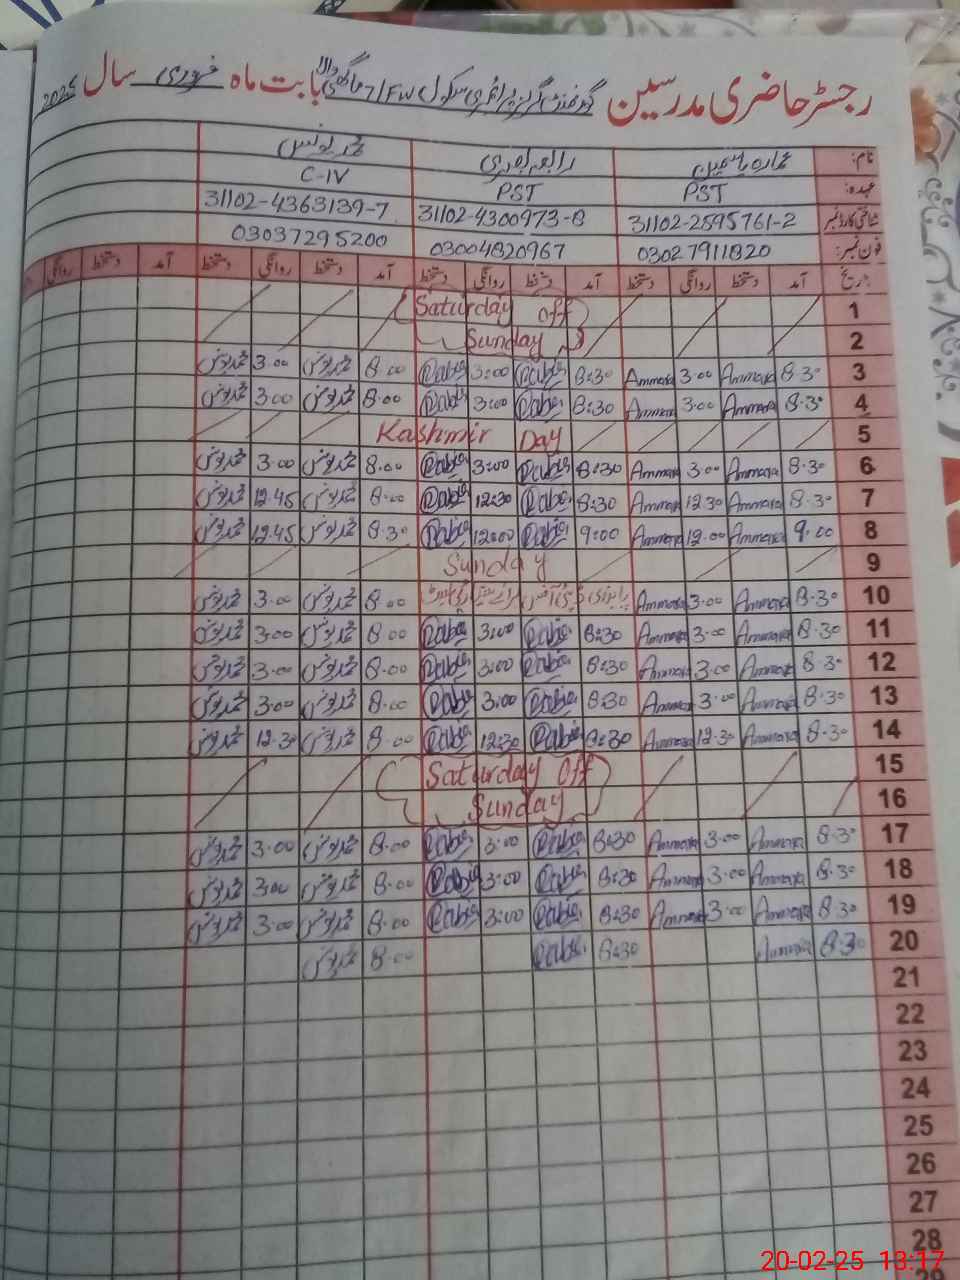 رجسٹر حاضری مدرسین گورنمنٹ گرلز پرائمری سکول 71/FW بابت ماہ فروری سال 2025
نام: عمارہ یاسمین رابعہ محمد یونس
عہدہ: PST PST C-IV
شناختی کارڈ نمبر 31102-2595761-2 31102-4300973-8 31102-4363139-7
فون نمبر: 03027911820 03004820967 03037295200
تاریخ آمد دستخط روانگی دستخط آمد دستخط روانگی دستخط آمد دستخط روانگی دستخط آمد دستخط روانگی
1 Saturday off
2 Sunday
3 8.30 Ammara 3.00 Ammara 8:30 Rabia 3:00 Rabia 8.00 محمد یونس 3.00 محمد یونس
4 8.30 Ammara 3.00 Ammara 8:30 Rabia 3:00 Rabia 8.00 محمد یونس 3.00 محمد یونس
5 Kashmir Day
6 8.30 Ammara 3.00 Ammara 8:30 Rabia 3:00 Rabia 8.00 محمد یونس 3.00 محمد یونس
7 8.30 Ammara 12.30 Ammara 8:30 Rabia 12:30 Rabia 8.00 محمد یونس 12.45 محمد یونس
8 9.00 Ammara 12.00 Ammara 9:00 Rabia 12:00 Rabia 8.30 محمد یونس 12.45 محمد یونس
9 Sunday
10 8.30 Ammara 3.00 Ammara 8.00 محمد یونس 3.00 محمد یونس
11 8.30 Ammara 3.00 Ammara 8:30 Rabia 3:00 Rabia 8.00 محمد یونس 3.00 محمد یونس
12 8.30 Ammara 3.00 Ammara 8:30 Rabia 3:00 Rabia 8.00 محمد یونس 3.00 محمد یونس
13 8.30 Ammara 3.00 Ammara 8:30 Rabia 3:00 Rabia 8.00 محمد یونس 3.00 محمد یونس
14 8.30 Ammara 12.30 Ammara 8:30 Rabia 12:30 Rabia 8.00 محمد یونس 12.30 محمد یونس
15 Saturday Off
16 Sunday
17 8.30 Ammara 3.00 Ammara 8:30 Rabia 3:00 Rabia 8.00 محمد یونس 3.00 محمد یونس
18 8.30 Ammara 3.00 Ammara 8:30 Rabia 3:00 Rabia 8.00 محمد یونس 3.00 محمد یونس
19 8.30 Ammara 3.00 Ammara 8:30 Rabia 3:00 Rabia 8.00 محمد یونس 3.00 محمد یونس
20 8.30 Ammara 8:30 Rabia 8.00 محمد یونس
21
22
23
24
25
26
27
28
29
20-02-25 13:17